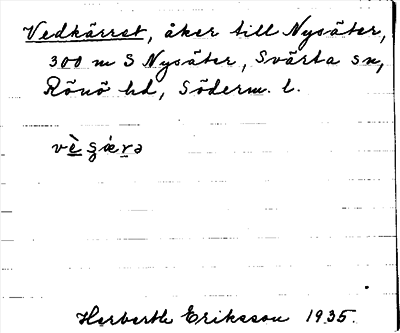 Vedkärret, åker till Nysäter,
300 m S Nysäter, Svärta sn,
Rönö hd, Söderm. l.
Herberth Eriksson 1935.